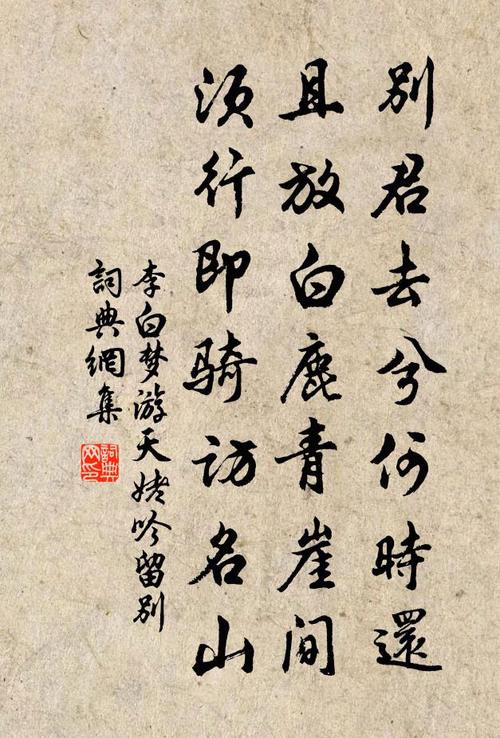 別君去兮何時還
且放白鹿青崖间
须行即骑访名山
李白梦游天姥吟留别
詞典網集
詞典网印